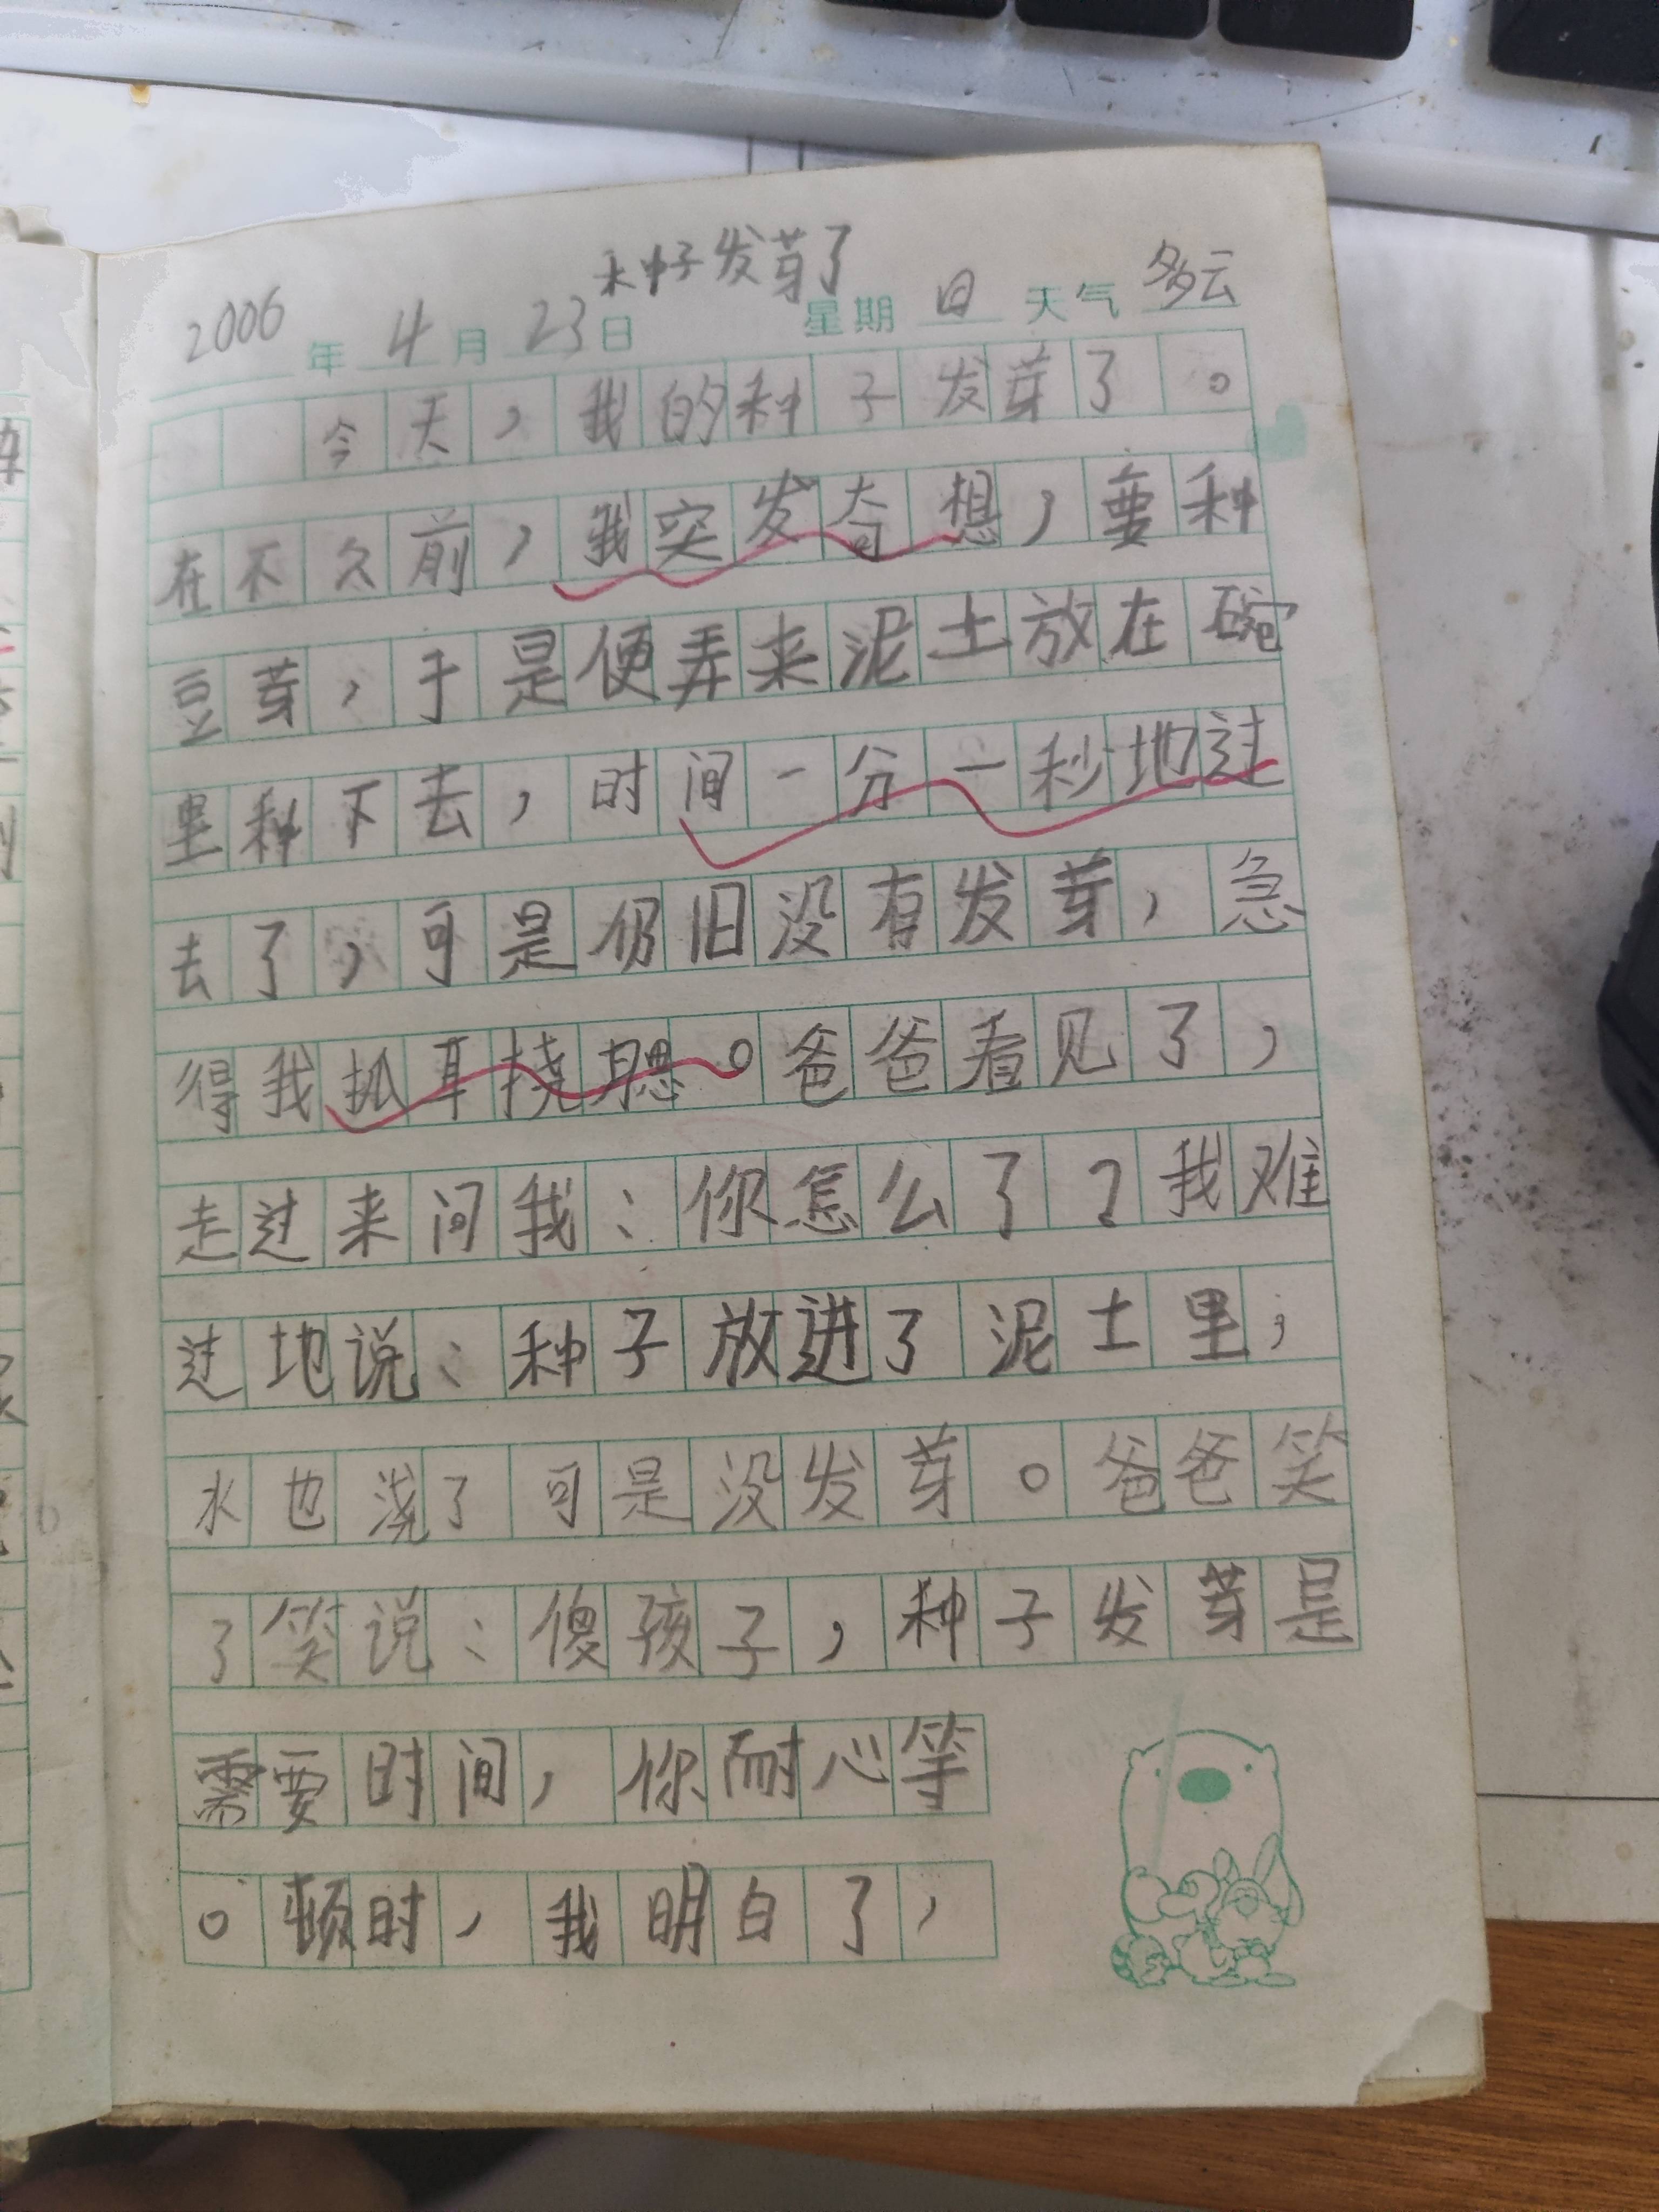 种子发芽了
2006年4月23日 星期日 天气多云
今天，我的种子发芽了。
在不久前，我突发奇想，要种
豆芽，于是便弄来泥土放在碗
里种下去，时间一分一秒地过
去了，可是仍旧没有发芽，急
得我抓耳挠腮。爸爸看见了，
走过来问我：你怎么了？我难
过地说：种子放进了泥土里，
水也浇了可是没发芽。爸爸笑
了笑说：傻孩子，种子发芽是
需要时间，你耐心等
。顿时，我明白了，